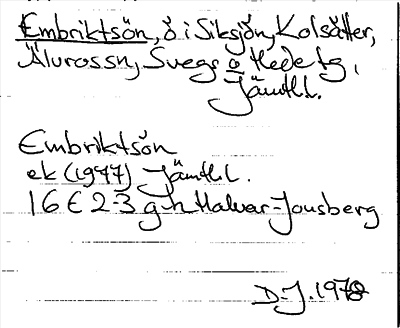 Embriktsön, ö i Siksjön, Kolsätter,
Älvros sn, Svegs o Hede tg,
Jämtl.l.
Embriktsön
ek (1977) Jämtl.l.
16 E 2-3 g-h Malvar-Jonsberg
D-J. 1978